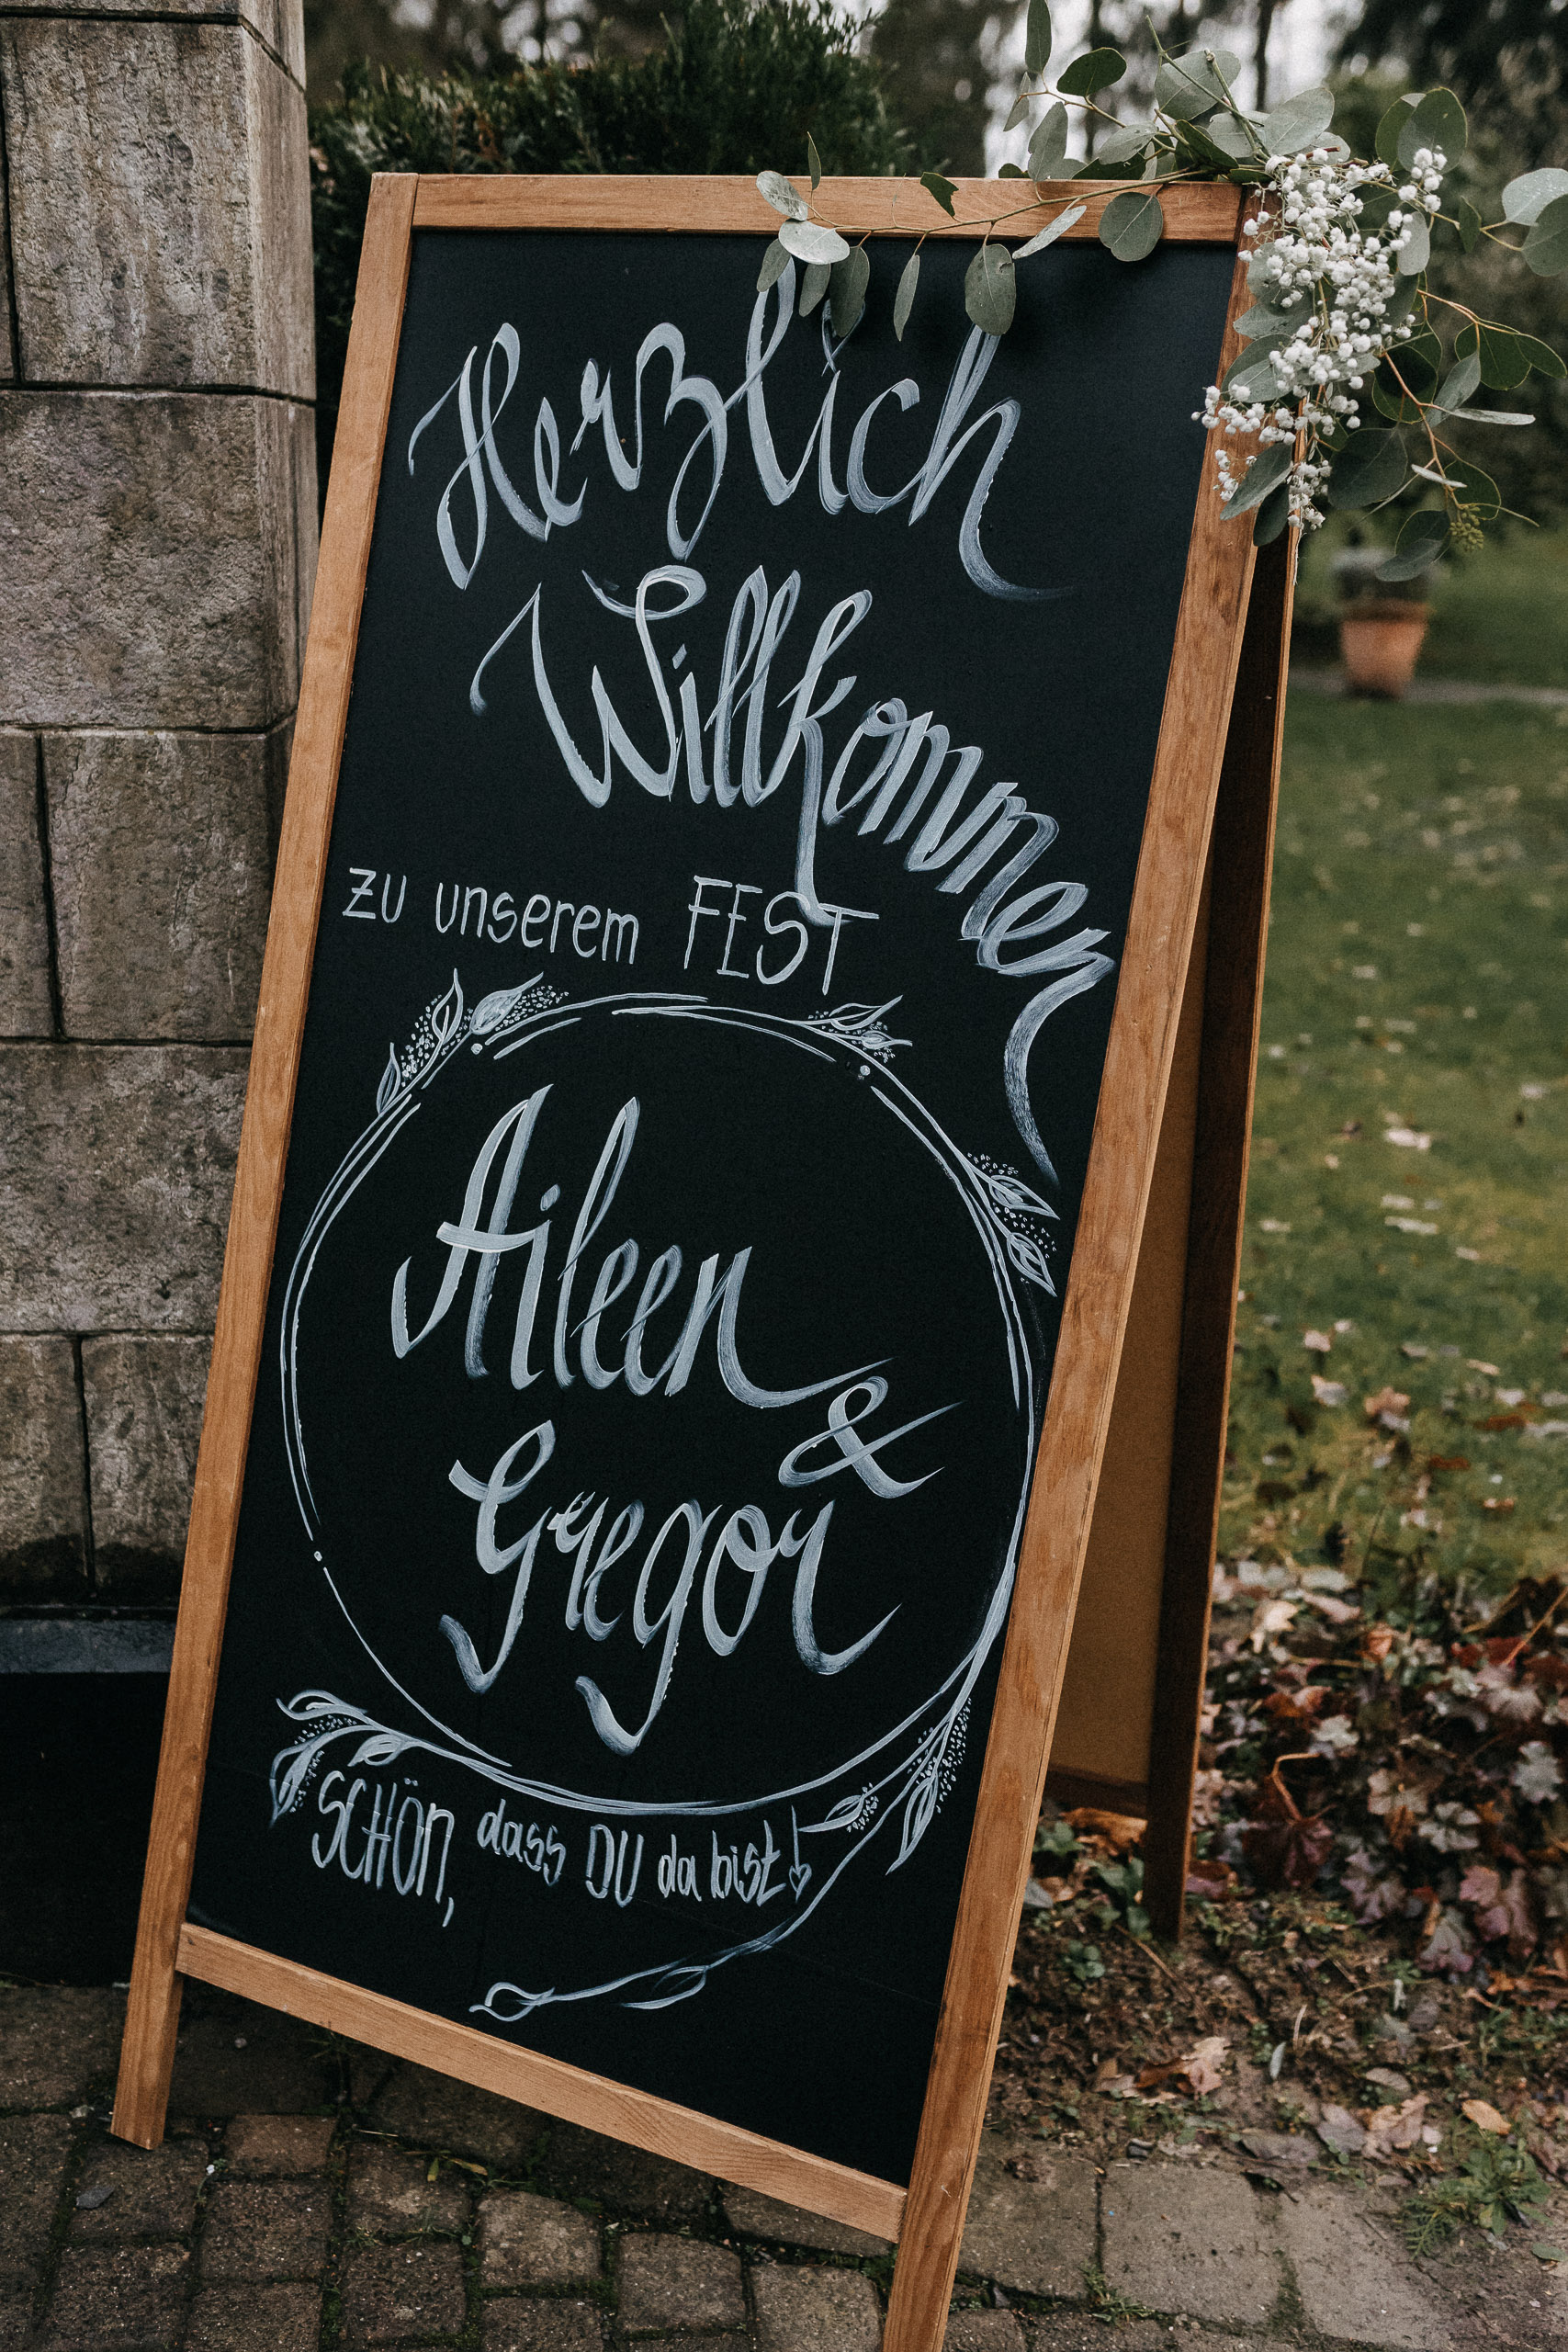 Herzlich
Willkommen
zu unserem FEST
Aileen
&
Gregor
SCHÖn, dass DU da bist!